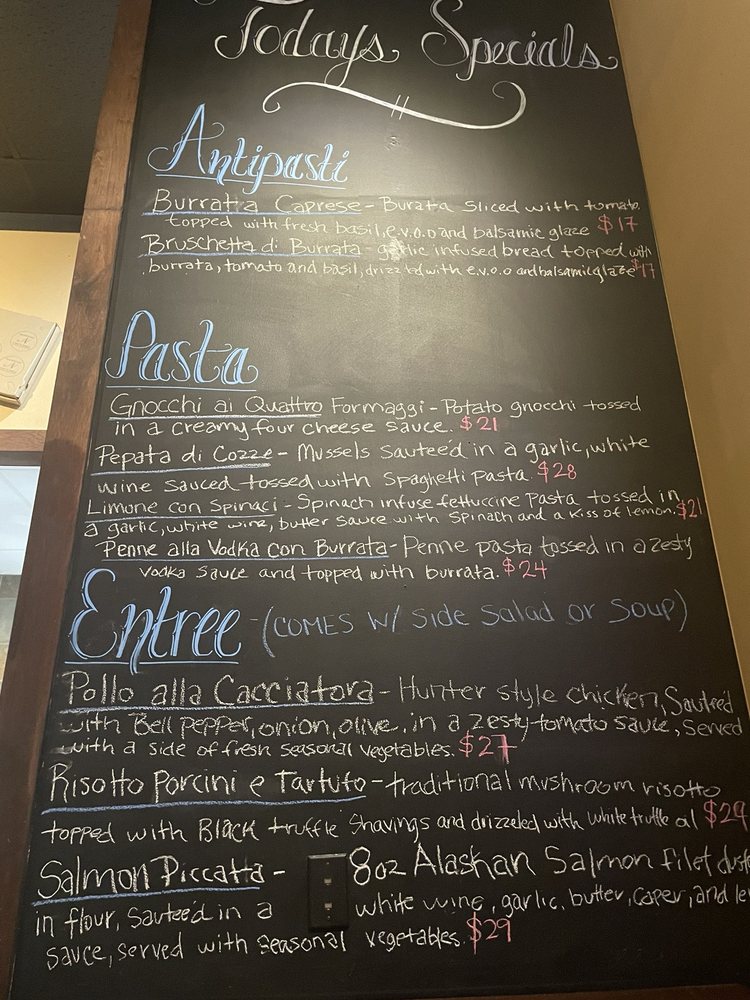 Todays Specials
Antipasti
Burratta Caprese - Burata sliced with tomato
topped with fresh basil, e.v.o.o and balsamic glaze $17
Bruschetta di Burrata - garlic infused bread topped with
burrata, tomato and basil, drizzled with e.v.o.o and balsamic glaze $17
Pasta
Gnocchi ai Quattro Formaggi - Potato gnocchi tossed
in a creamy four cheese sauce. $21
Pepata di Cozze - Mussels sauteed in a garlic, white
wine sauced tossed with spaghetti pasta. $28
Limone con Spinaci - Spinach infuse fettuccine pasta tossed in
a garlic, white wine, butter sauce with spinach and a kiss of lemon. $21
Penne alla Vodka con Burrata - Penne pasta tossed in a zesty
vodka sauce and topped with burrata. $24
Entree - (COMES W/ Side Salad or Soup)
Pollo alla Cacciatora - Hunter style chicken, Sauteed
with Bell pepper, onion, olive, in a zesty tomato sauce, served
with a side of fresh seasonal vegetables. $27
Risotto Porcini e Tartufo - traditional mushroom risotto
topped with Black truffle Shavings and drizzeled with white truffle oil
Salmon Piccatta - 8oz Alaskan Salmon filet
in flour, Sauteed in a white wine, garlic, butter, caper, and
sauce, served with seasonal vegetables. $29